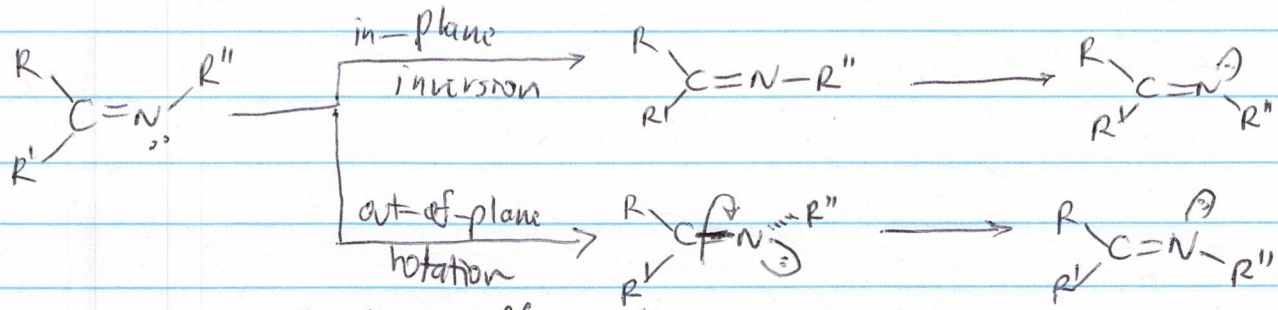 in-plane
inversion
R
R"
C=N
R'
R
C=N-R"
R'
R
C=N
R'
R"
out-of-plane
rotation
R
C=N
R"
R'
R
C=N
R'
R"